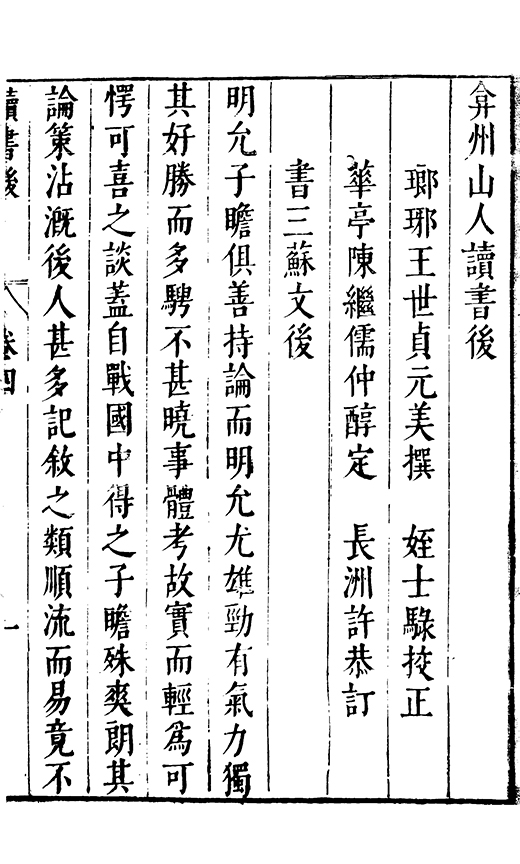 弇州山人讀書後
瑯琊王世貞元美撰　姪士騄挍正
華亭陳繼儒仲醇定　長洲許恭訂
書三蘇文後
明允子瞻俱善持論而明允尤雄勁有氣力獨
其好勝而多騁不甚曉事體考故實而輕爲可
愕可喜之談蓋自戰國中得之子瞻殊爽朗其
論策沾漑後人甚多記敘之類順流而易竟不
讀書後　卷四　一